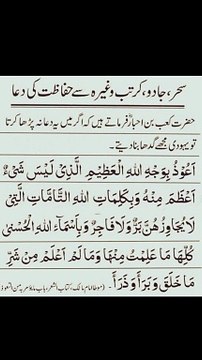 سحر، جادو، کرتب وغیرہ سے حفاظت کی دعا
حضرت کعب بن احبارؓ فرماتے ہیں کہ اگر میں یہ دعا نہ پڑھا کرتا
تو یہودی مجھے گدھا بنا دیتے۔
اَعُوْذُ بِوَجْهِ اللهِ الْعَظِيْمِ الَّذِيْ لَيْسَ شَيْءٌ
اَعْظَمَ مِنْهُ وَبِكَلِمَاتِ اللهِ التَّامَّاتِ الَّتِيْ
لَا يُجَاوِزُهُنَّ بَرٌّ وَّلَا فَاجِرٌ وَّبِاَسْمَاءِ اللهِ الْحُسْنٰى
كُلِّهَا مَا عَلِمْتُ مِنْهَا وَمَا لَمْ اَعْلَمْ مِنْ شَرِّ
مَا خَلَقَ وَبَرَأَ وَذَرَأَ۔ (موطا امام مالک، کتاب الشعر، باب